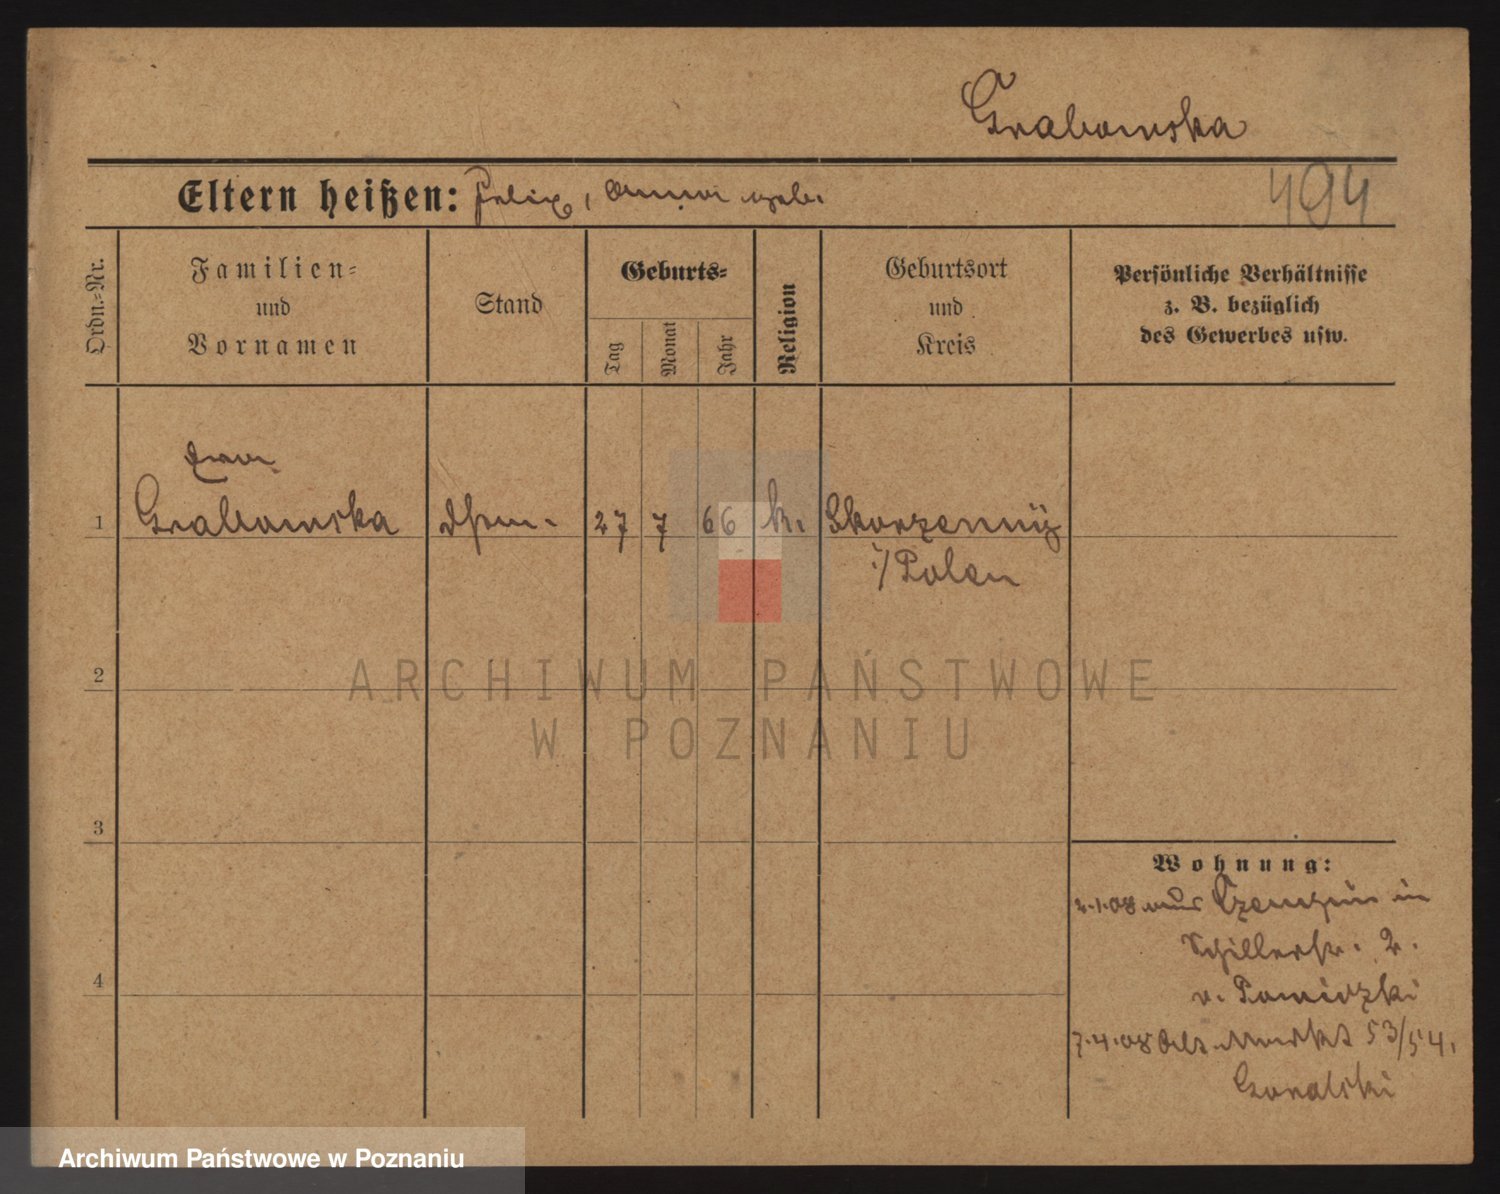 Grabowska
Eltern heißen: Felix, Anna geb.
494
Ordn.-Nr.
Familien-
und
Vornamen
Stand
Geburts-
Tag
Monat
Jahr
Religion
Geburtsort
und
Kreis
Persönliche Verhältnisse
z. B. bezüglich
des Gewerbes usw.
1
Grabowska
27 7 66 k. Skorzenniz
i/Polen
2
3
4
Wohnung:
2.1.08 aus
Schillerstr. 2.
v.
7.4.08 Alt Markt 53/54.
Goralski
ARCHIWUM PAŃSTWOWE
W POZNANIU
Archiwum Państwowe w Poznaniu